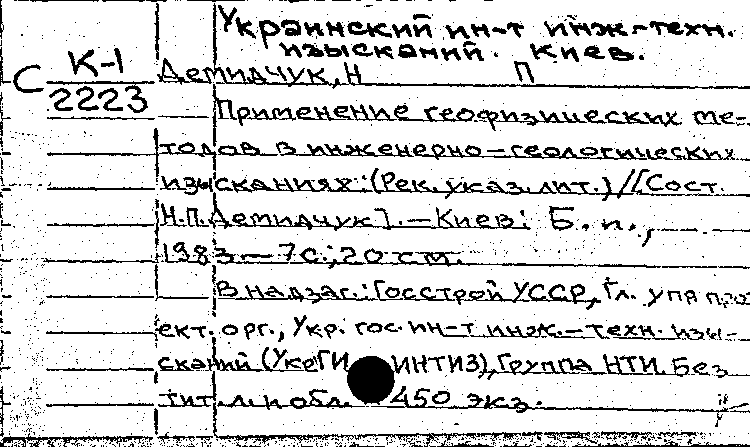 Украинский ин-т инж.-техн.
изысканий. Киев.
С К-1
2223
Демидчук, Н П
Применение геофизических ме-
тодов в инженерно-геологических
изысканиях: (Рек. указ. лит.) // [Сост.
Н.П. Демидчук]. — Киев: Б. и.,
1983 — 7 с.; 20 см.
В надзаг.: Госстрой УССР, Гл. упр про
ект. орг., Укр. гос. ин-т инж.-техн. изы-
сканий (УкрГИ ИНТИЗ), Группа НТИ. Без
тит. л. и обл. 450 экз.